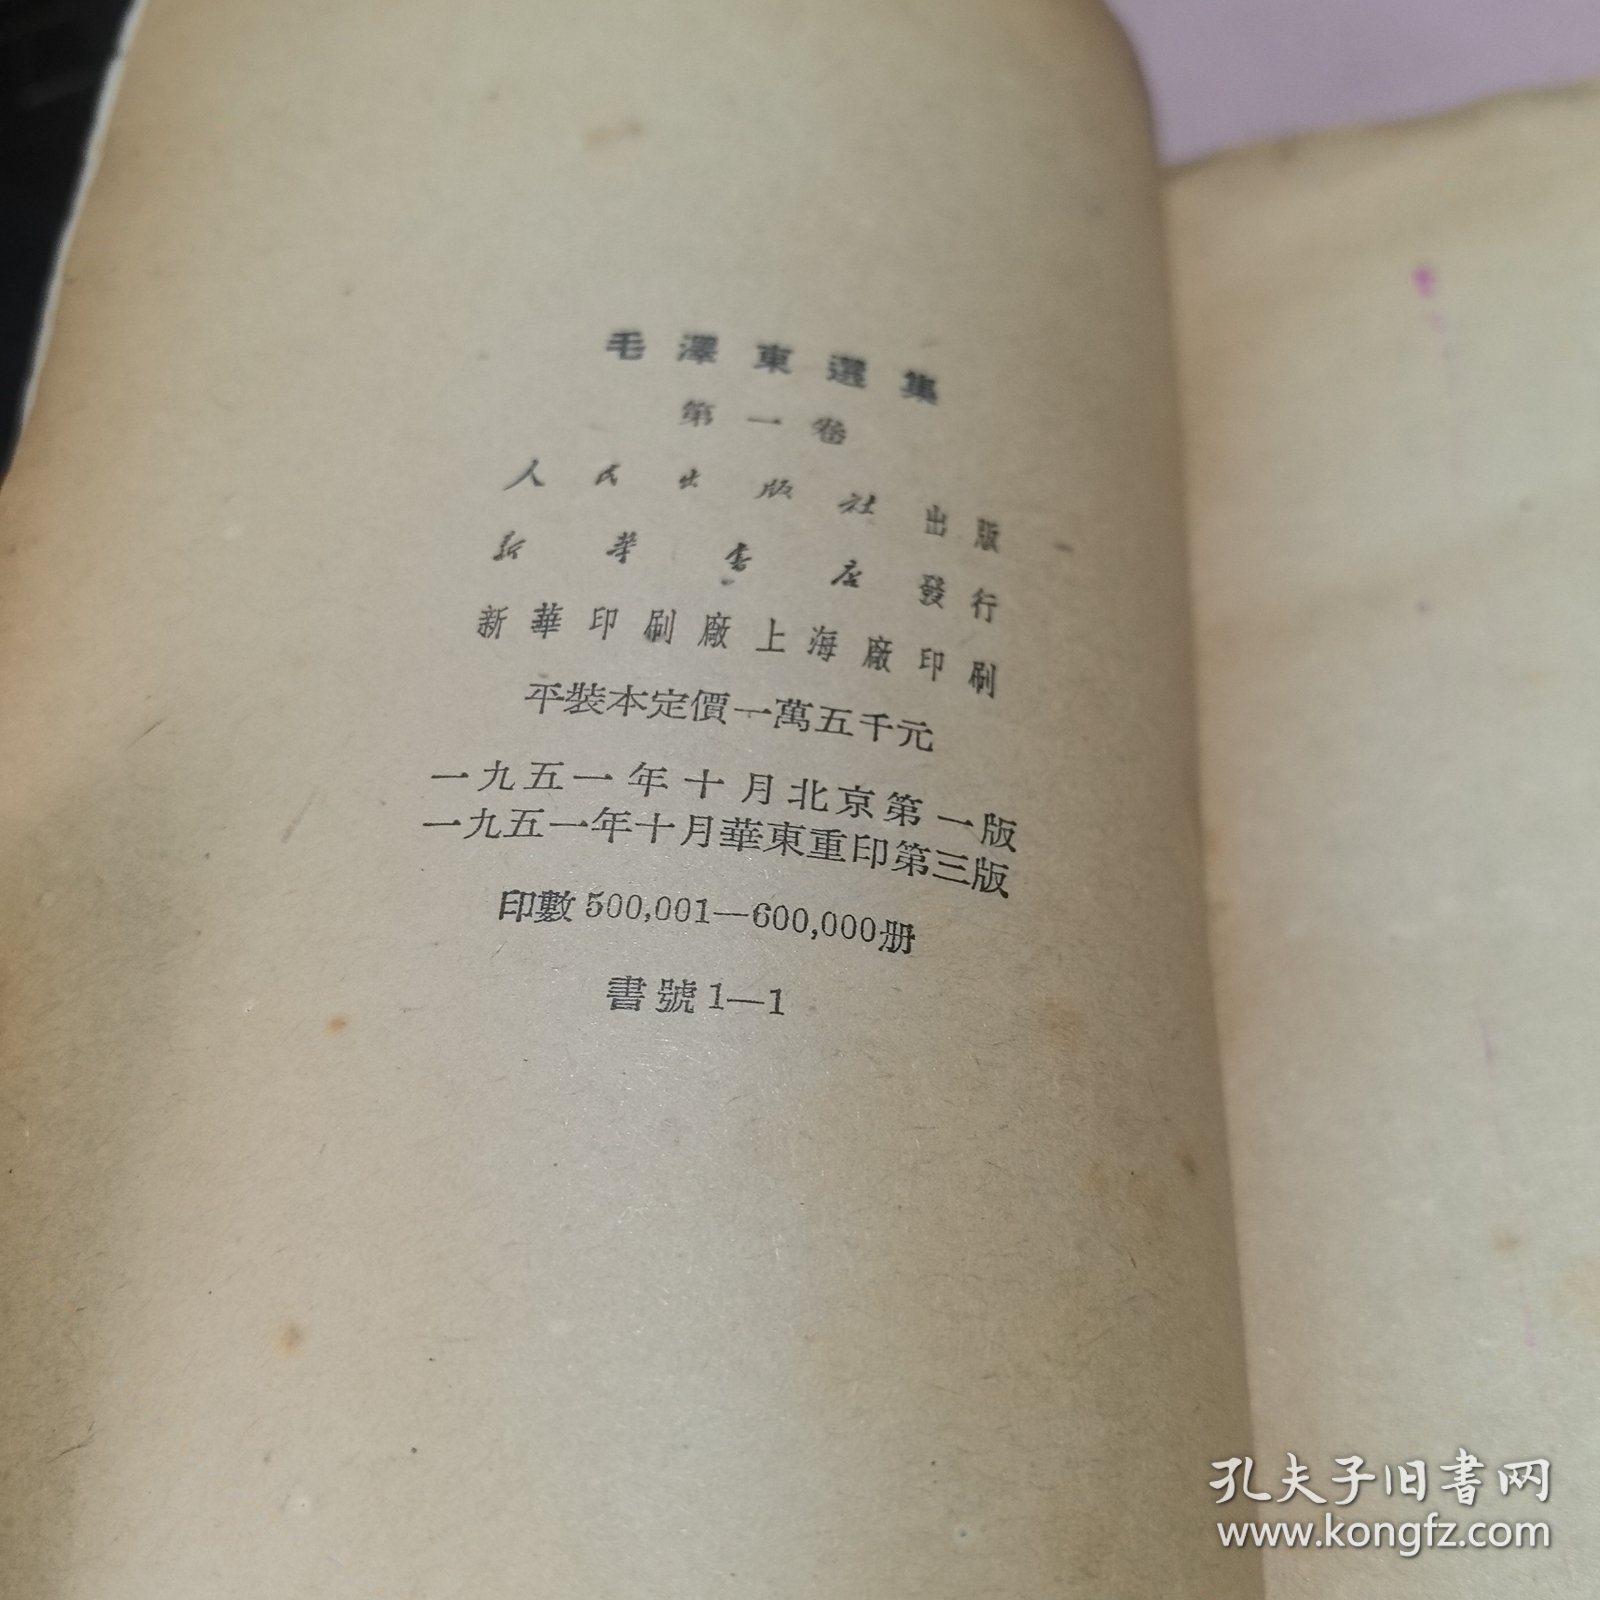 毛澤東選集
第一卷
人民出版社出版
新華書店發行
新華印刷廠上海廠印刷
平裝本定價一萬五千元
一九五一年十月北京第一版
一九五一年十月華東重印第三版
印數500,001—600,000册
書號1—1
孔夫子旧書网
www.kongfz.com